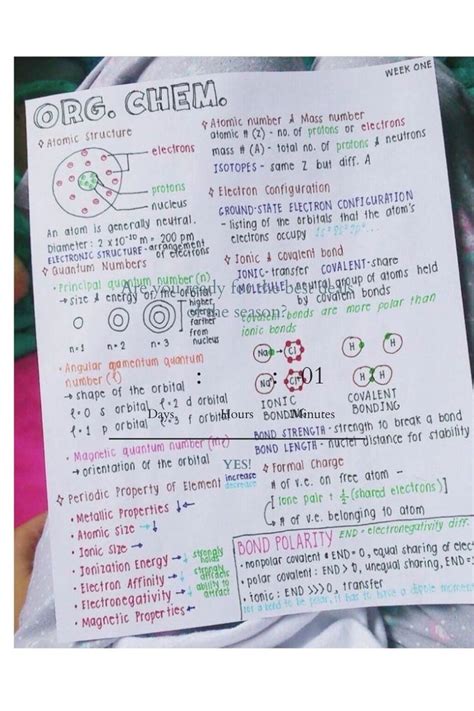 WEEK ONE
ORG. CHEM.
Atomic structure
electrons
protons
nucleus
An atom is generally neutral.
Diameter: 2 x 10⁻¹⁰ m = 200 pm
ELECTRONIC STRUCTURE - arrangement of electrons
Quantum Numbers
• Principal quantum number (n)
→ size & energy of the orbital
higher energy, farther from nucleus
n=1 n=2 n=3
• Angular momentum quantum
number (ℓ)
→ shape of the orbital
ℓ=0 s orbital ℓ=2 d orbital
ℓ=1 p orbital ℓ=3 f orbital
• Magnetic quantum number (mℓ)
→ orientation of the orbital
Periodic Property of Element
increase
decrease
• Metallic Properties ↓←
• Atomic size ↓
• Ionic size
• Ionization Energy → strongly holds
• Electron Affinity strongly attracts
• Electronegativity ability to attract
• Magnetic Properties ←
Atomic number & Mass number
atomic # (Z) - no. of protons or electrons
mass # (A) - total no. of protons & neutrons
ISOTOPES - same Z but diff. A
Electron Configuration
GROUND-STATE ELECTRON CONFIGURATION
- listing of the orbitals that the atom's
electrons occupy 1s² 2s² 2p⁶...
Ionic & Covalent bond
IONIC - transfer COVALENT - share
MOLECULE - neutral group of atoms held
by covalent bonds
covalent bonds are more polar than
ionic bonds
Na Cl H H
Na⁺ Cl⁻ H H
IONIC BONDING
COVALENT BONDING
BOND STRENGTH - strength to break a bond
BOND LENGTH - nuclei distance for stability
Formal Charge
# of v.e. on free atom -
[lone pair + ½ (shared electrons)]
→ # of v.e. belonging to atom
BOND POLARITY END - electronegativity diff.
• nonpolar covalent: END = 0, equal sharing of elec
• polar covalent: END > 0, unequal sharing, END
• ionic: END >>> 0, transfer
for a bond to be polar, it has to have a dipole momen
Are you ready for the best deals
of the season?
: : 01
Days Hours Minutes
YES!